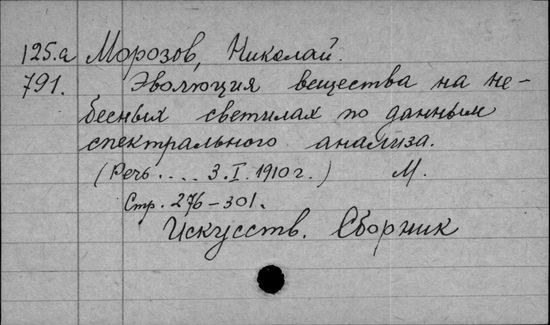 125.а Морозов, Николай.
791. Эволюция вещества на не-
бесных светилах по данным
спектрального анализа.
(Речь .... 3.I.1910 г.) М.
Стр. 276-301.
Искусств. Сборник